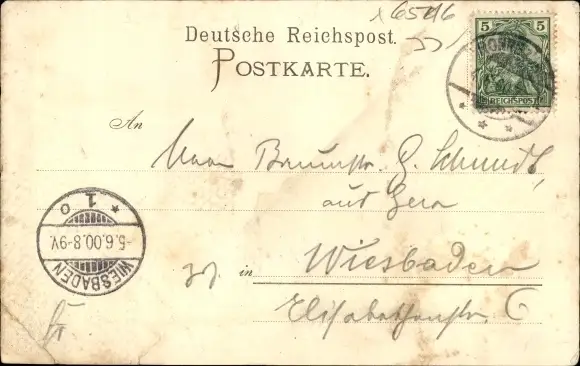 6546
Deutsche Reichspost.
POSTKARTE.
5 5
REICHSPOST
An
Herrn G. Schmidt,
aus Gera
in Wiesbaden
Elisabethenstr. 6
* 1 o
-5.6.00.8-9V.
WIESBADEN